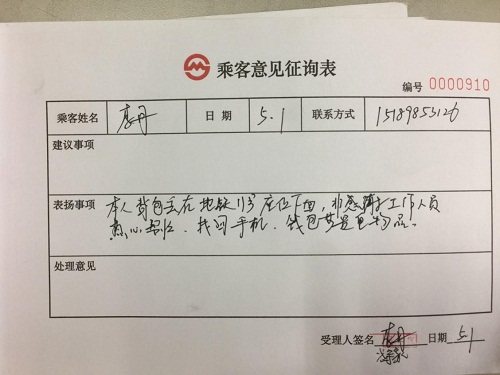 乘客意见征询表
编号 0000910
乘客姓名 日期 5.1 联系方式 15189853126
建议事项
表扬事项 本人背包丢在地铁11号座位下面，非感谢工作人员
热心帮忙、找回手机、钱包等物品。
处理意见
受理人签名 日期 5.1